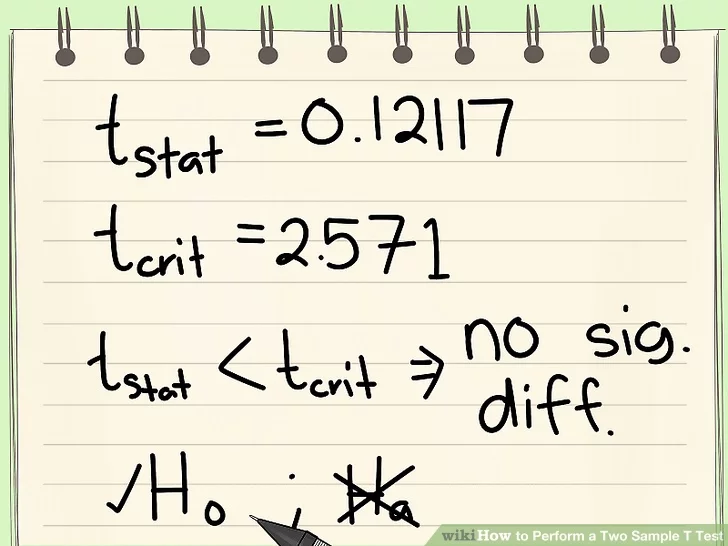 t_stat = 0.12117
t_crit = 2.571
t_stat < t_crit ⇒ no sig.
diff.
✓H₀ ; Hₐ
wikiHow to Perform a Two Sample T Test